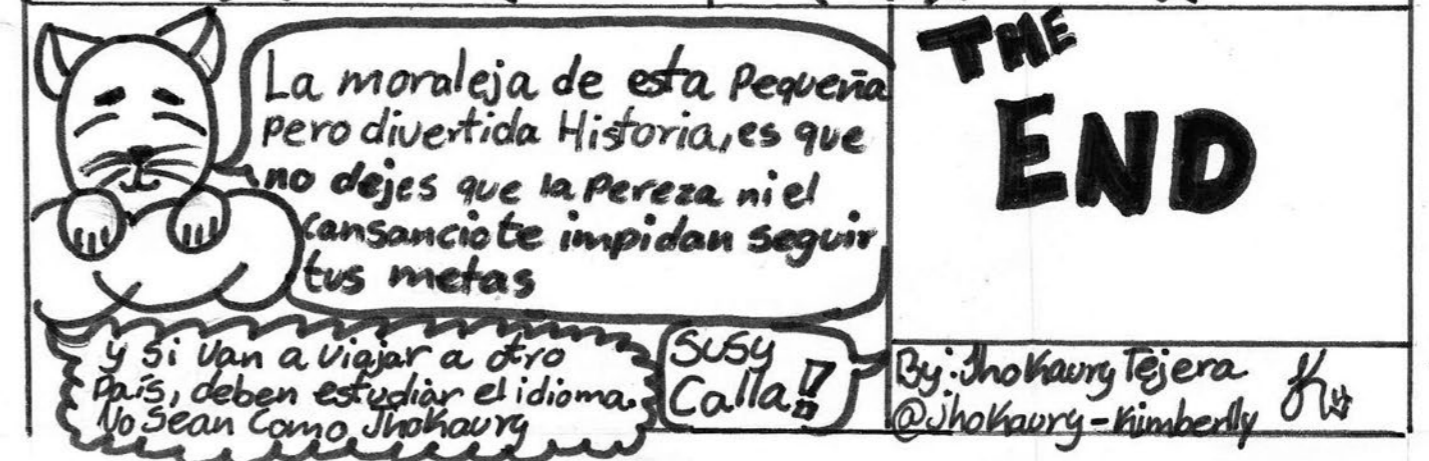 La moraleja de esta Pequeña
pero divertida Historia, es que
no dejes que la Pereza ni el
cansancio te impidan seguir
tus metas
y si van a viajar a otro
País, deben estudiar el idioma.
No Sean Como JhoKaury
SUSY
Calla!!
THE
END
By: JhoKaury Tejera
@JhoKaury-Kimberlly